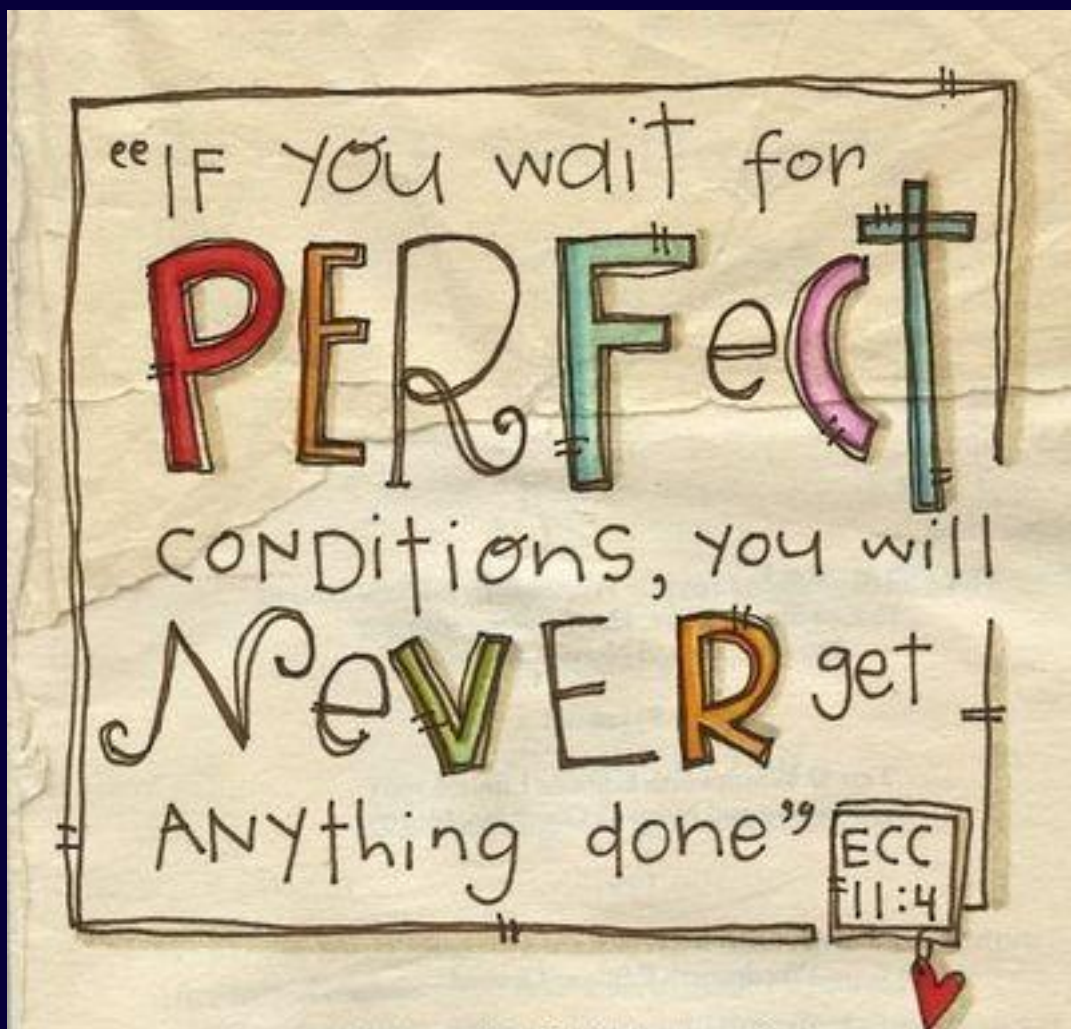 “IF you wait for
PERFecT
CONDitions, you will
NeVER get
ANything done”
ECC
11:4